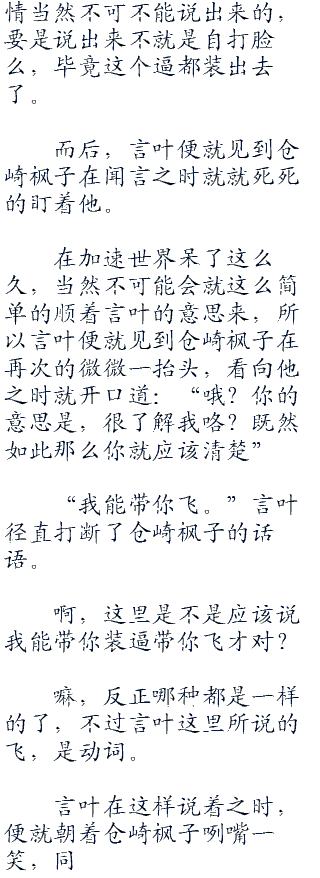 情当然不可不能说出来的，
要是说出来不就是自打脸
么，毕竟这个逼都装出去
了。
而后，言叶便就见到仓
崎枫子在闻言之时就就死死
的盯着他。
在加速世界呆了这么
久，当然不可能会就这么简
单的顺着言叶的意思来，所
以言叶便就见到仓崎枫子在
再次的微微一抬头，看向他
之时就开口道：“哦？你的
意思是，很了解我咯？既然
如此那么你就应该清楚”
“我能带你飞。”言叶
径直打断了仓崎枫子的话
语。
啊，这里是不是应该说
我能带你装逼带你飞才对？
嘛，反正哪种都是一样
的了，不过言叶这里所说的
飞，是动词。
言叶在这样说着之时，
便就朝着仓崎枫子咧嘴一
笑，同